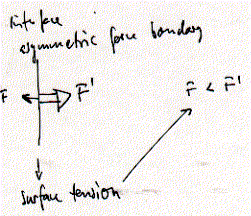 interface
asymmetric force boundary
F F'
F < F'
surface tension